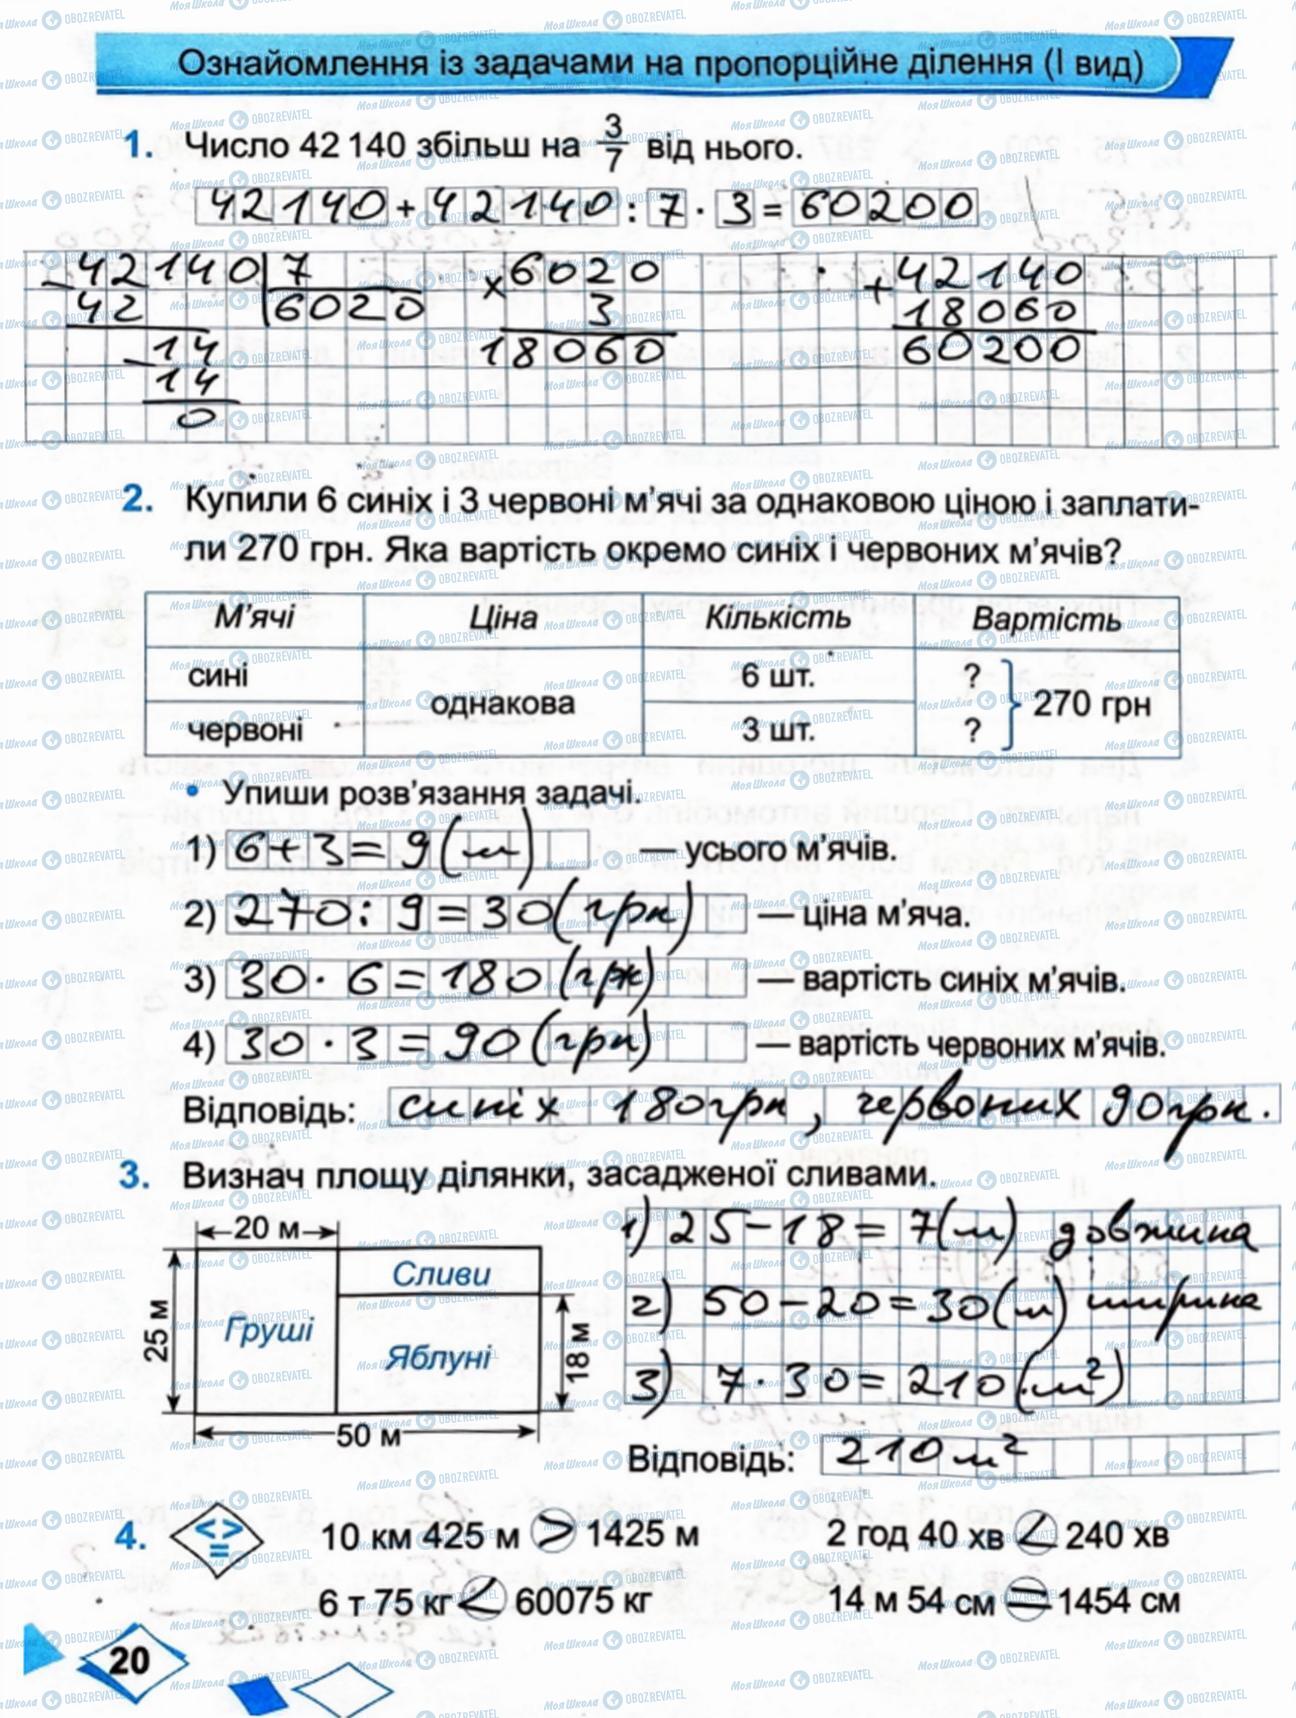 Ознайомлення із задачами на пропорційне ділення (І вид)
1. Число 42 140 збільш на 3/7 від нього.
42140 + 42140 : 7 · 3 = 60200
42140 7 × 6020 + 42140
42 6020 3 18060
14 18060 60200
14
0
2. Купили 6 синіх і 3 червоні м'ячі за однаковою ціною і заплати-
ли 270 грн. Яка вартість окремо синіх і червоних м'ячів?
М'ячі Ціна Кількість Вартість
сині однакова 6 шт. ? 270 грн
червоні 3 шт. ?
• Упиши розв'язання задачі.
1) 6+3=9(м) — усього м'ячів.
2) 270:9=30(грн) — ціна м'яча.
3) 30·6=180(грн) — вартість синіх м'ячів.
4) 30·3=90(грн) — вартість червоних м'ячів.
Відповідь: синіх 180грн, червоних 90грн.
3. Визнач площу ділянки, засадженої сливами.
20 м
25 м
Груші
Сливи
Яблуні
18 м
50 м
1) 25-18=7(м) довжина
2) 50-20=30(м) ширина
3) 7·30=210(м²)
Відповідь: 210м²
4. < > = 10 км 425 м > 1425 м 2 год 40 хв < 240 хв
6 т 75 кг < 60075 кг 14 м 54 см = 1454 см
20
МояШкола OBOZREVATEL